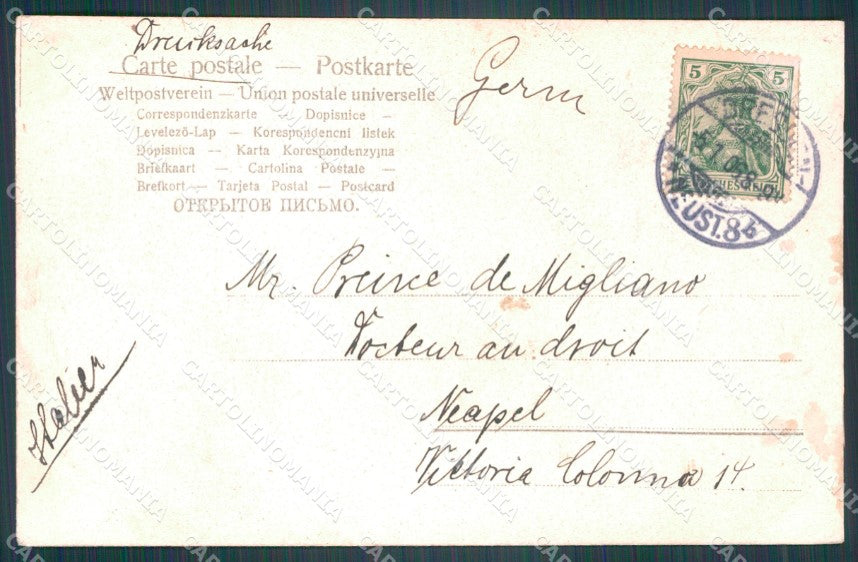 Drucksache
Carte postale — Postkarte
Weltpostverein — Union postale universelle
Correspondenzkarte — Dopisnice —
Levelezö-Lap — Korespondencni listek
Dopisnica — Karta Korespondenzyjna
Briefkaart — Cartolina Postale —
Brefkort — Tarjeta Postal — Postcard
ОТКРЫТОЕ ПИСЬМО.
Germ
5 5
NEUST. 8b
Mr. Preince de Migliano
Docteur au droit
Neapel
Vittoria Colonna 14.
Italien
CARTOLINOMANIA